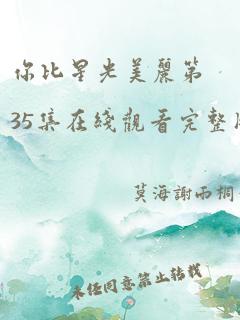 你比星光美麗第
35集在綫觀看完整
莫海謝雨桐
未任同意禁止转载